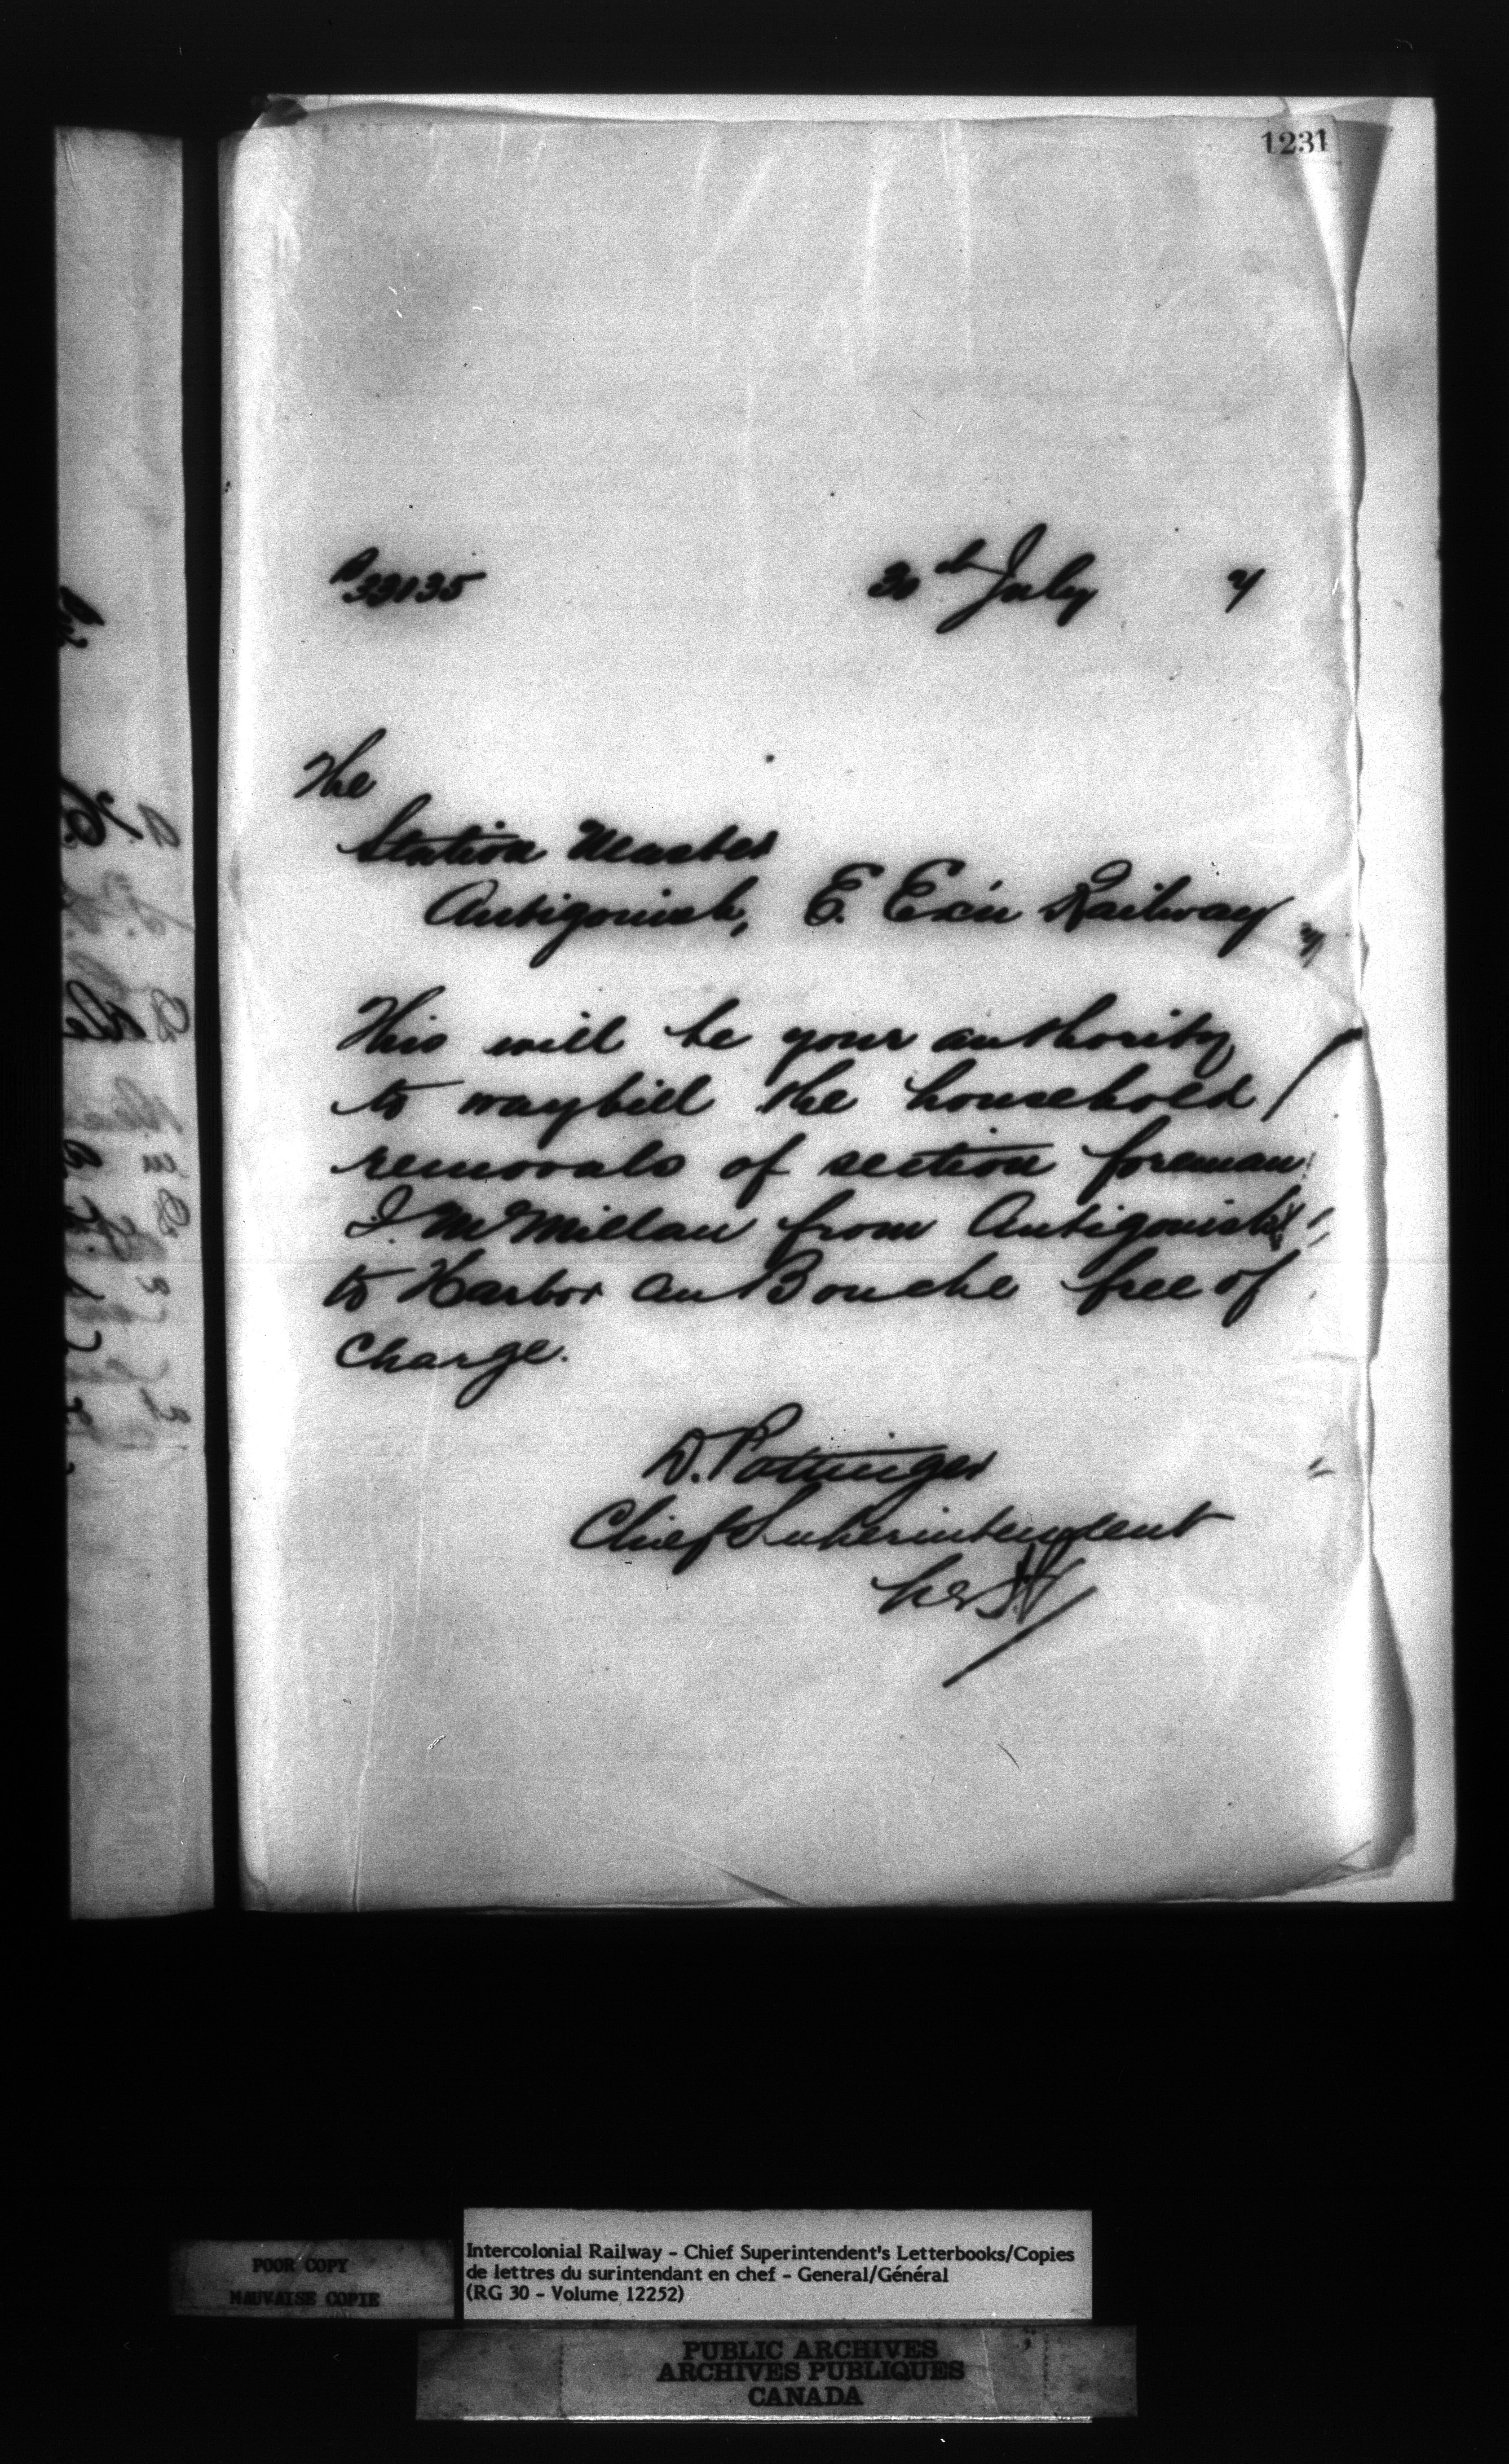 1231
33135 30th July 7
The
Station Master
Antigonish, E. Ex'n Railway
This will be your authority
to waybill the household
removals of section foreman
J. McMillan from Antigonish
to Harbor au Bouche free of
charge.
D. Pottinger
Chief Superintendent
POOR COPY
MAUVAISE COPIE
Intercolonial Railway - Chief Superintendent's Letterbooks/Copies
de lettres du surintendant en chef - General/Général
(RG 30 - Volume 12252)
PUBLIC ARCHIVES
ARCHIVES PUBLIQUES
CANADA